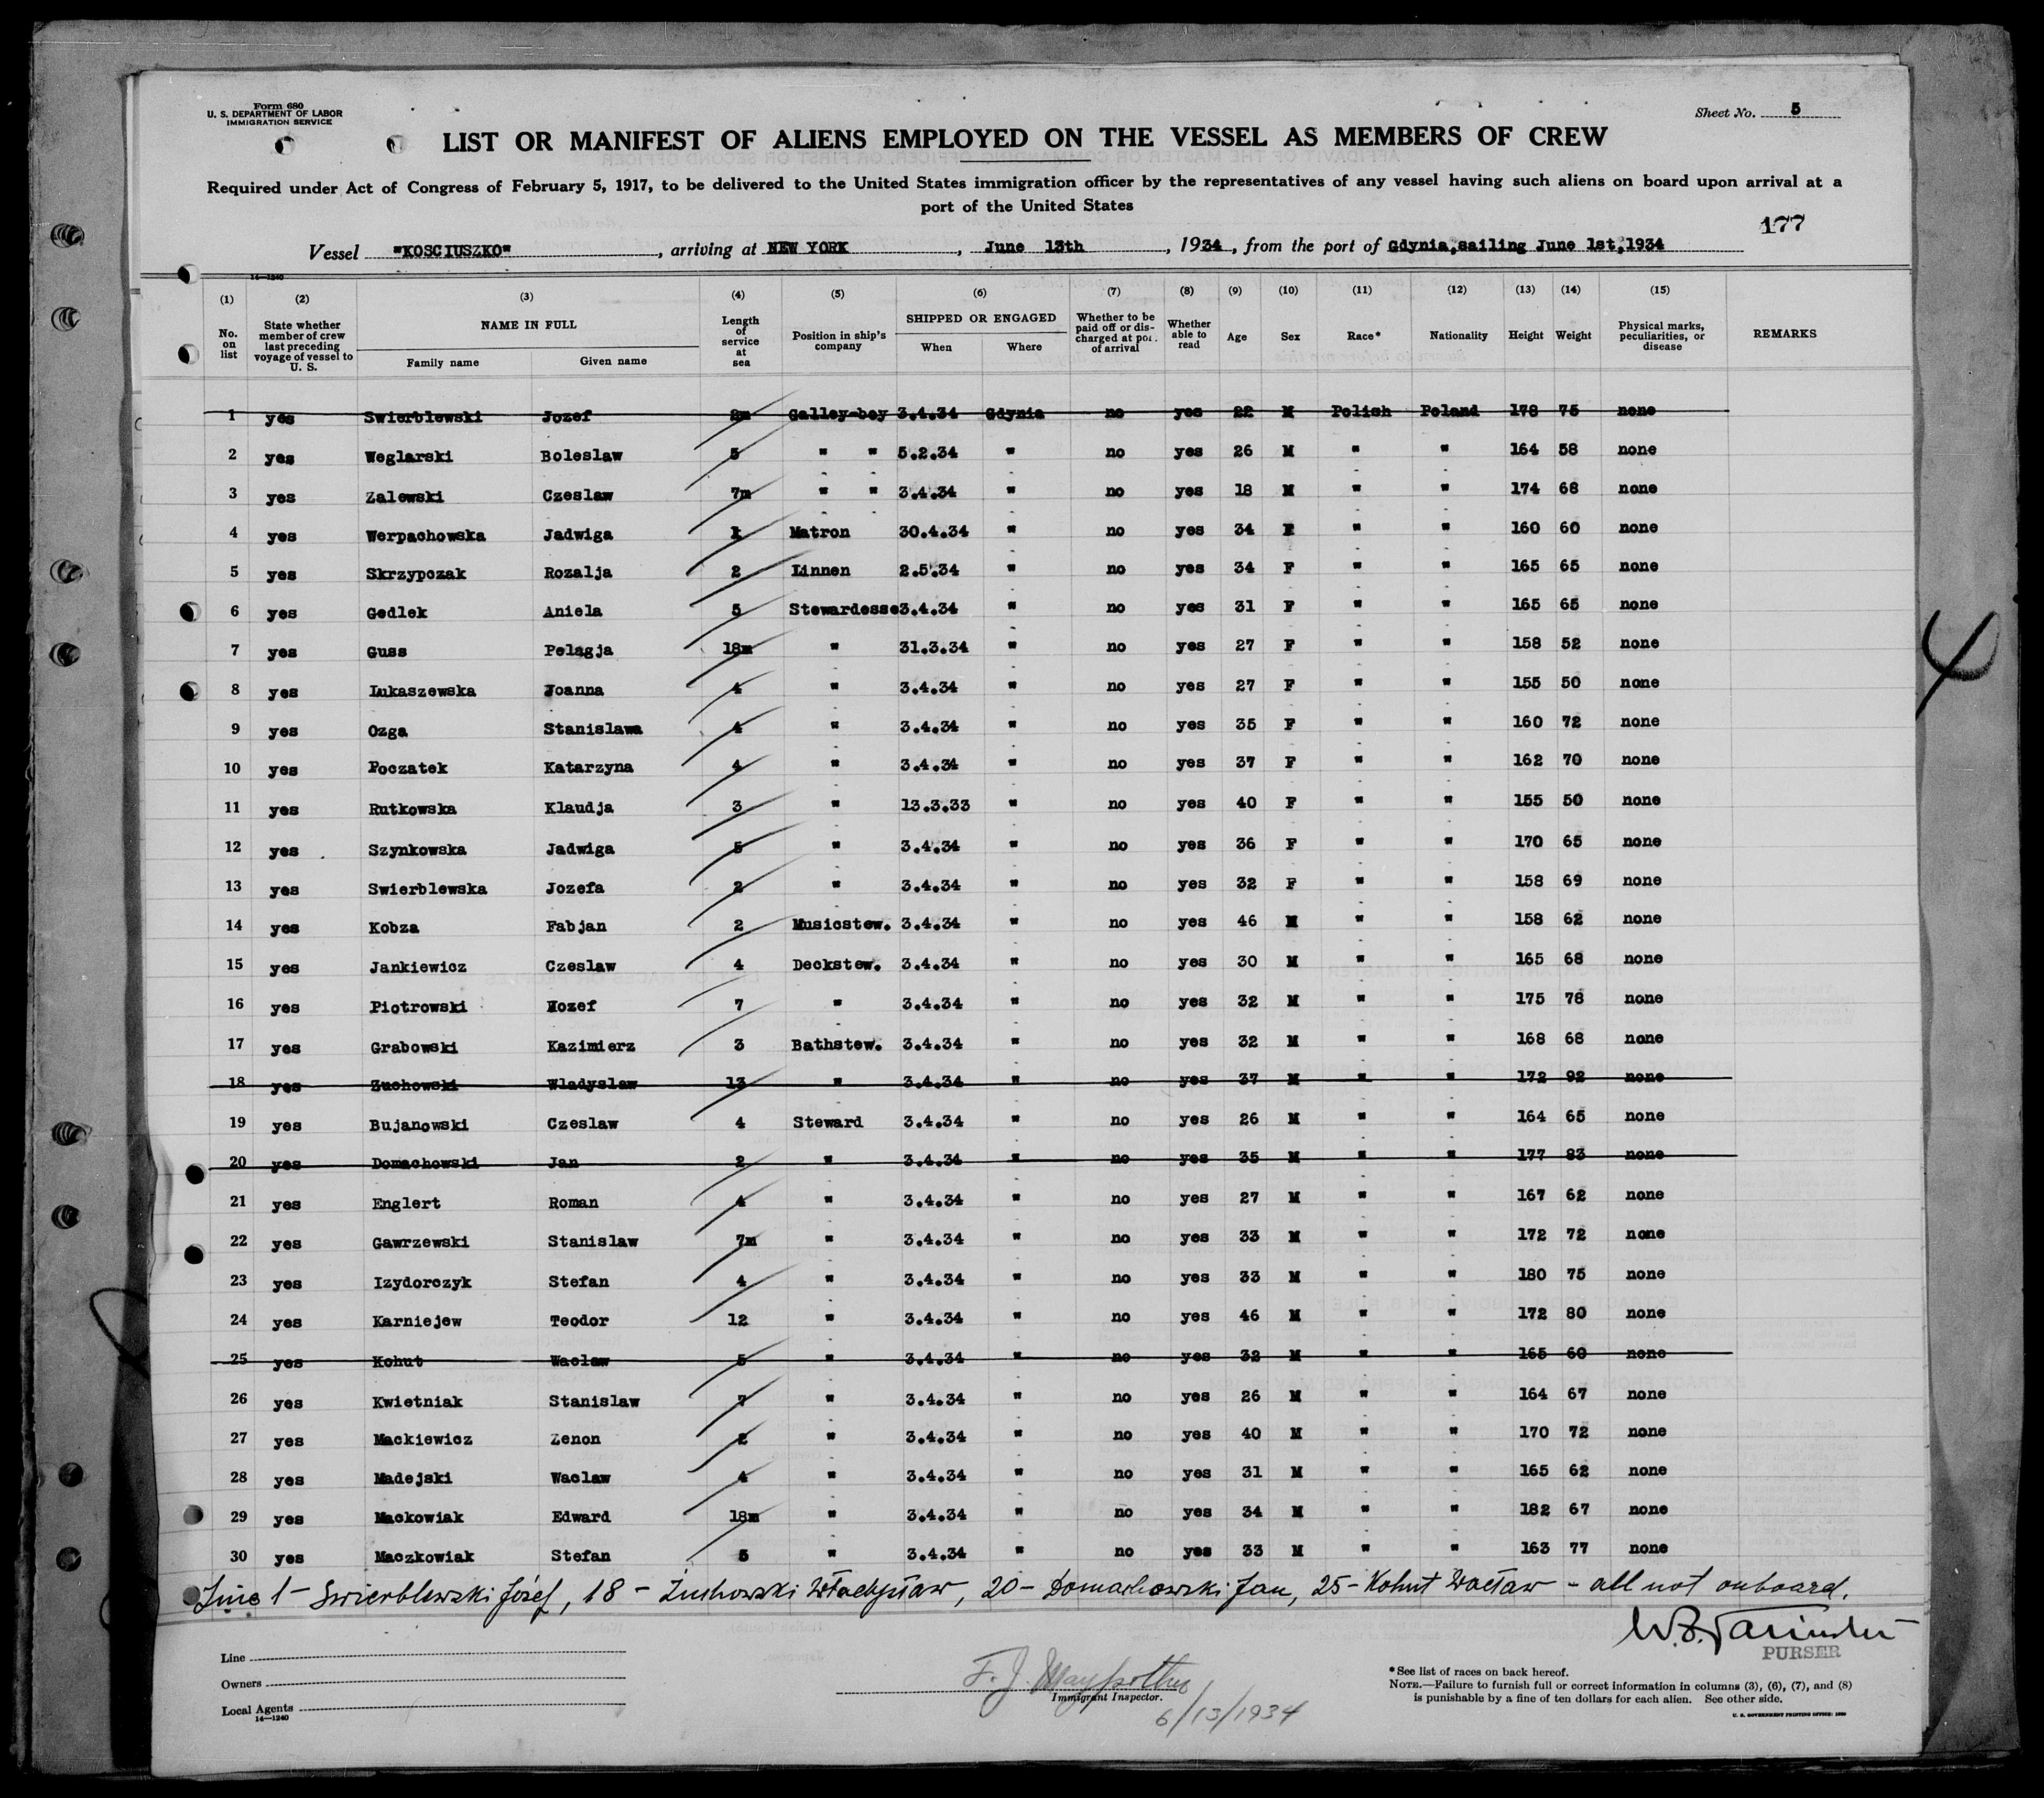 Form 680
U. S. DEPARTMENT OF LABOR
IMMIGRATION SERVICE
Sheet No. 5
LIST OR MANIFEST OF ALIENS EMPLOYED ON THE VESSEL AS MEMBERS OF CREW
Required under Act of Congress of February 5, 1917, to be delivered to the United States immigration officer by the representatives of any vessel having such aliens on board upon arrival at a
port of the United States
177
Vessel "KOSCIUSZKO", arriving at NEW YORK, June 13th, 1934, from the port of Gdynia,sailing June 1st,1934
14—1240
(1) (2) (3) (4) (5) (6) (7) (8) (9) (10) (11) (12) (13) (14) (15)
No. on list State whether member of crew last preceding voyage of vessel to U. S. NAME IN FULL Family name Given name Length of service at sea Position in ship's company SHIPPED OR ENGAGED When Where Whether to be paid off or discharged at port of arrival Whether able to read Age Sex Race* Nationality Height Weight Physical marks, peculiarities, or disease REMARKS
1 yes Swierblewski Jozef 8m Galley-boy 3.4.34 Gdynia no yes 22 M Polish Poland 178 75 none
2 yes Weglarski Boleslaw 5 " " 5.2.34 " no yes 26 M " " 164 58 none
3 yes Zalewski Czeslaw 7m " " 3.4.34 " no yes 18 M " " 174 68 none
4 yes Werpachowska Jadwiga 1 Matron 30.4.34 " no yes 34 F " " 160 60 none
5 yes Skrzypczak Rozalja 2 Linnen 2.5.34 " no yes 34 F " " 165 65 none
6 yes Gedlek Aniela 5 Stewardesse 3.4.34 " no yes 31 F " " 165 65 none
7 yes Guss Pelagja 18m " 31.3.34 " no yes 27 F " " 158 52 none
8 yes Lukaszewska Joanna 4 " 3.4.34 " no yes 27 F " " 155 50 none
9 yes Ozga Stanislawa 4 " 3.4.34 " no yes 35 F " " 160 72 none
10 yes Poczatek Katarzyna 4 " 3.4.34 " no yes 37 F " " 162 70 none
11 yes Rutkowska Klaudja 3 " 13.3.33 " no yes 40 F " " 155 50 none
12 yes Szynkowska Jadwiga 5 " 3.4.34 " no yes 36 F " " 170 65 none
13 yes Swierblewska Jozefa 2 " 3.4.34 " no yes 32 F " " 158 69 none
14 yes Kobza Fabjan 2 Musicstew. 3.4.34 " no yes 46 M " " 158 62 none
15 yes Jankiewicz Czeslaw 4 Deckstew. 3.4.34 " no yes 30 M " " 165 68 none
16 yes Piotrowski Hozef 7 " 3.4.34 " no yes 32 M " " 175 78 none
17 yes Grabowski Kazimierz 3 Bathstew. 3.4.34 " no yes 32 M " " 168 68 none
18 yes Zuchowski Wladyslaw 13 " 3.4.34 " no yes 37 M " " 172 92 none
19 yes Bujanowski Czeslaw 4 Steward 3.4.34 " no yes 26 M " " 164 65 none
20 yes Domachowski Jan 2 " 3.4.34 " no yes 35 M " " 177 83 none
21 yes Englert Roman 4 " 3.4.34 " no yes 27 M " " 167 62 none
22 yes Gawrzewski Stanislaw 7m " 3.4.34 " no yes 33 M " " 172 72 none
23 yes Izydorczyk Stefan 4 " 3.4.34 " no yes 33 M " " 180 75 none
24 yes Karniejew Teodor 12 " 3.4.34 " no yes 46 M " " 172 80 none
25 yes Kohut Waclaw 5 " 3.4.34 " no yes 32 M " " 165 60 none
26 yes Kwietniak Stanislaw 7 " 3.4.34 " no yes 26 M " " 164 67 none
27 yes Mackiewicz Zenon 2 " 3.4.34 " no yes 40 M " " 170 72 none
28 yes Madejski Waclaw 4 " 3.4.34 " no yes 31 M " " 165 62 none
29 yes Mackowiak Edward 18m " 3.4.34 " no yes 34 M " " 182 67 none
30 yes Maczkowiak Stefan 5 " 3.4.34 " no yes 33 M " " 163 77 none
Line 1 – Swierblewski Józef, 18 – Zuchowski Władysław, 20 – Domachowski Jan, 25 – Kohut Wacław – all not onboard.
PURSER
Line
Owners
Local Agents
14—1240
F. J.
Immigrant Inspector.
6/13/1934
*See list of races on back hereof.
NOTE.—Failure to furnish full or correct information in columns (3), (6), (7), and (8)
is punishable by a fine of ten dollars for each alien. See other side.
U. S. GOVERNMENT PRINTING OFFICE: